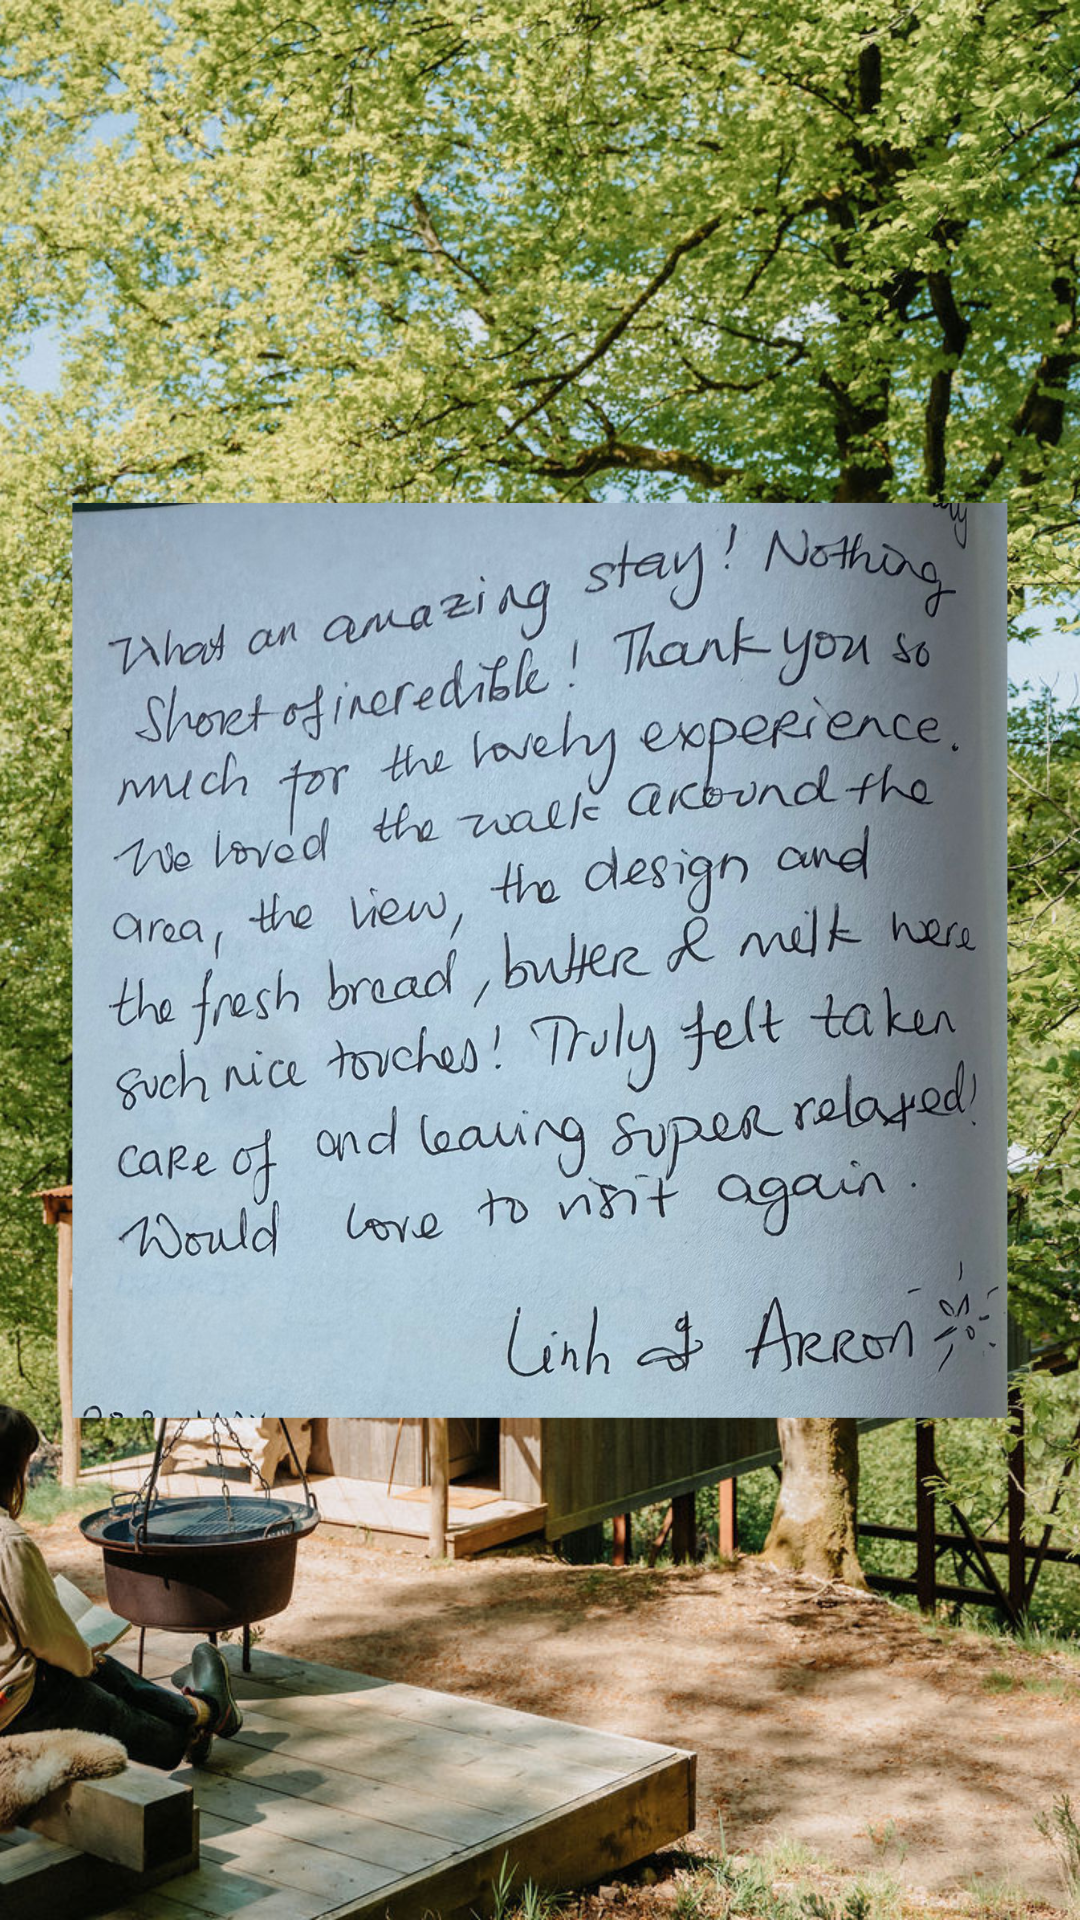 What an amazing stay! Nothing
Short of incredible! Thank you so
much for the lovely experience.
We loved the walk around the
area, the view, the design and
the fresh bread, butter & milk were
such nice touches! Truly felt taken
care of and leaving super relaxed!
Would love to visit again.
Linh & Arron